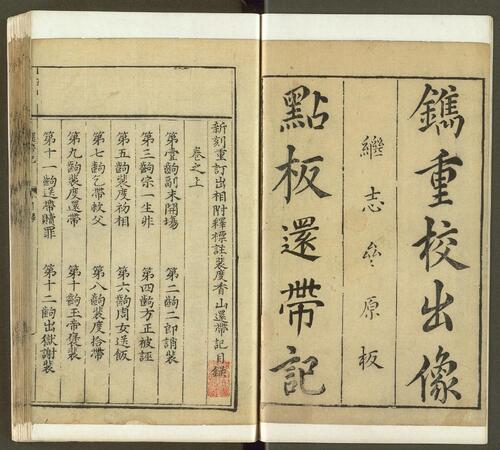 鐫重校出像
繼志齋原板
點板還帶記
新刻重訂出相附釋標註裴度香山還帶記目錄
卷之上
第壹齣副末開塲 第二齣二郎誚裴
第三齣宗一生非 第四齣方正被誣
第五齣裴度初相 第六齣周女送飯
第七齣乞帶救父 第八齣裴度拾帶
第九齣裴度還帶 第十齣玉帝褒裴
第十一齣送帶贖罪 第十二齣出獄謝裴